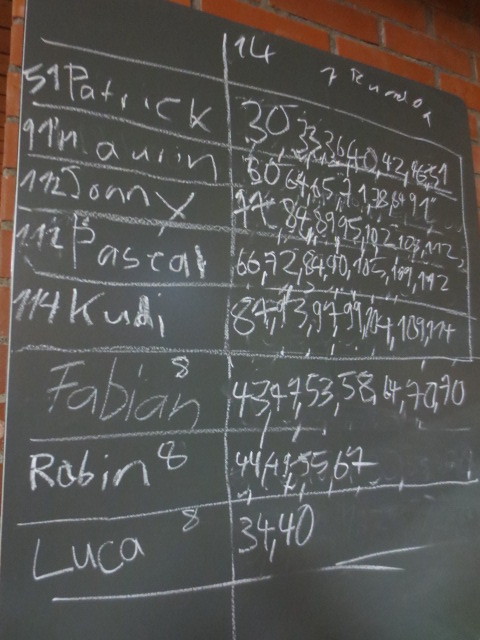 14 7 Runden
51 Patrick 30, 33, 36, 40, 42, 46, 51
91 Maurin 60, 64, 65, 71, 78, 84, 91
112 Jonny 77, 84, 89, 95, 102, 108, 112
112 Pascal 66, 72, 84, 90, 105, 109, 112
114 Kudi 84, 93, 97, 99, 104, 109, 114
Fabian 8 43, 47, 53, 58, 64, 70, 70
Robin 8 44, 55, 67
Luca 8 34, 40